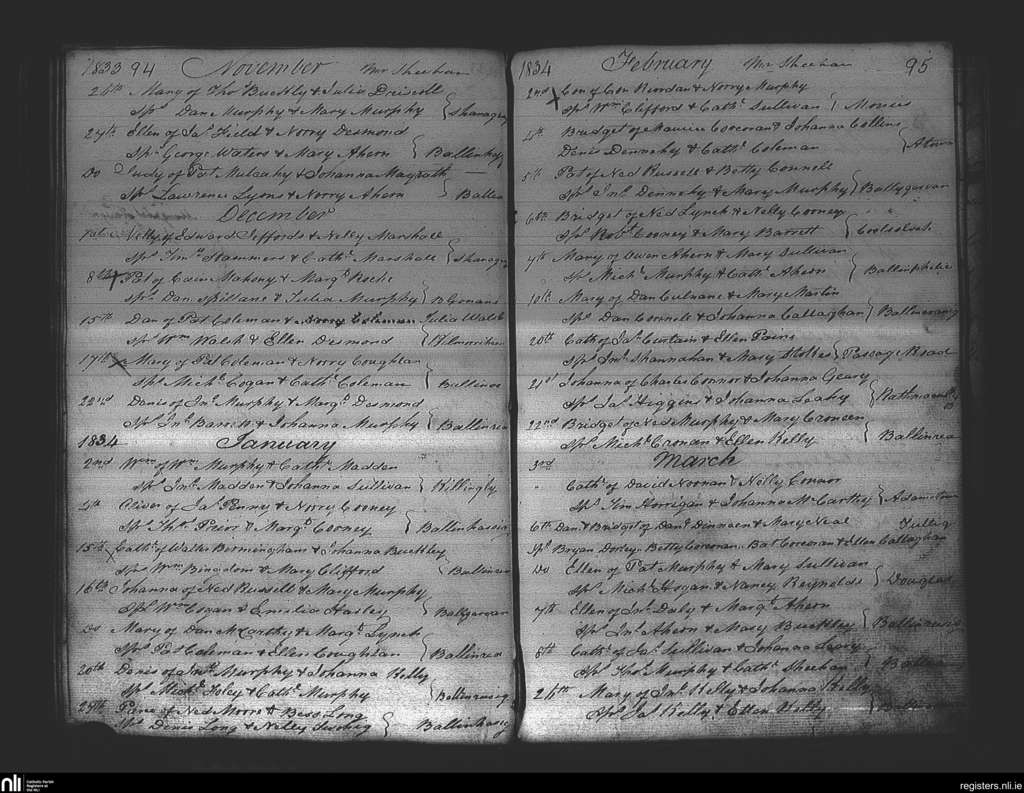 1833 94 November Mr Sheehan
26th Mary of Thos Buckly & Julia Driscoll
Sps Dan Murphy & Mary Murphy } Shanagry
27th Ellen of Jas Field & Norry Desmond
Sps George Waters & Mary Ahern }
Do Judy of Pat Mulcahy & Johanna Magrath
Sps Lawrence Lyons & Norry Ahern }
December
7th Nelly of Edward Jeffords & Nelly Marshall
Sps Jno Stammers & Cathe Marshall } Shanagry
8th Pat of Mahony & Margt Roche
Sps Dan Spillane & Julia Murphy }
15th Dan of Pat Coleman & Norry Coleman Julia Walsh
Sps Wm Walsh & Ellen Desmond }
17th Mary of Pat Coleman & Norry Coughlan
Sps Michl Cogan & Cathe Coleman }
22nd Denis of Jno Murphy & Margt Desmond
Sps Jno Barrett & Johanna Murphy } Ballinrea
1834 January
2nd Wm of Wm Murphy & Cathe Madden
Sps Jno Madden & Johanna Sullivan } Killingly
4th Oliver of Jas Penny & Norry Cooney
Sps Thos Prior & Margt Cooney } Ballinhassig
15th Cathe of Walter Bermingham & Johanna Buckley
Sps Wm Bingdom & Mary Clifford } Ballinrea
16th Johanna of Ned Russell & Mary Murphy
Sps Wm Cogan & Emilia Hasley }
Do Mary of Dan McCarthy & Margt Lynch
Sps Pat Coleman & Ellen Coughlan } Ballinrea
20th Denis of Jno Murphy & Johanna Kelly
Sps Michl Foley & Cathe Murphy }
25th of Ned Moore & Bess Long
Sps Denis Long & Nelly } Ballinhassig
1834 February Mr Sheehan 95
2nd Con of Con Riordan & Norry Murphy
Sps Wm Clifford & Cathe Sullivan }
4th Bridget of Maurice Corcoran & Johanna Collins
Denis Dennehy & Cathe Coleman }
5th Pat of Ned Russell & Betty Connell
Sps Jno Dennehy & Mary Murphy }
6th Bridget of Ned Lynch & Nelly Cooney
Sps Robt Cooney & Mary Barrett }
7th Mary of Owen Ahern & Mary Sullivan
Sps Michl Murphy & Cathe Ahern }
10th Mary of Dan Culnane & Mary Martin
Sps Dan Connell & Johanna Callaghan }
20th Cath of Jas Curtain & Ellen Paine
Sps Jno Shannahan & Mary Stokes } Passage Road
21st Johanna of Charles Connor & Johanna Geary
Sps Jas Higgins & Johanna Leahy }
22nd Bridget of Ned Murphy & Mary Croneen
Sps Michl Cronan & Ellen Kelly } Ballinrea
3rd March
" Cathe of David Noonan & Nelly Connor
Sps Tim Horrigan & Johanna McCarthy } Adamstown
6th Dan & Bridget of Danl Dinneen & Mary Neal
Sps Bryan Dorley Betty Corcoran Bat Corcoran & Ellen Callaghan
Do Ellen of Pat Murphy & Mary Sullivan
Sps Michl Hogan & Nancy Reignolds } Douglas
7th Ellen of Jno Daly & Margt Ahern
Sps Jno Ahern & Mary Buckley }
8th Cathe of Jas Sullivan & Johanna Leary
Sps Thos Murphy & Cathe Sheehan }
26th Mary of Jno Kelly & Johanna Kelly
Sps Jas Kelly & Ellen Kelly }
nli Catholic Parish Registers at the NLI
registers.nli.ie